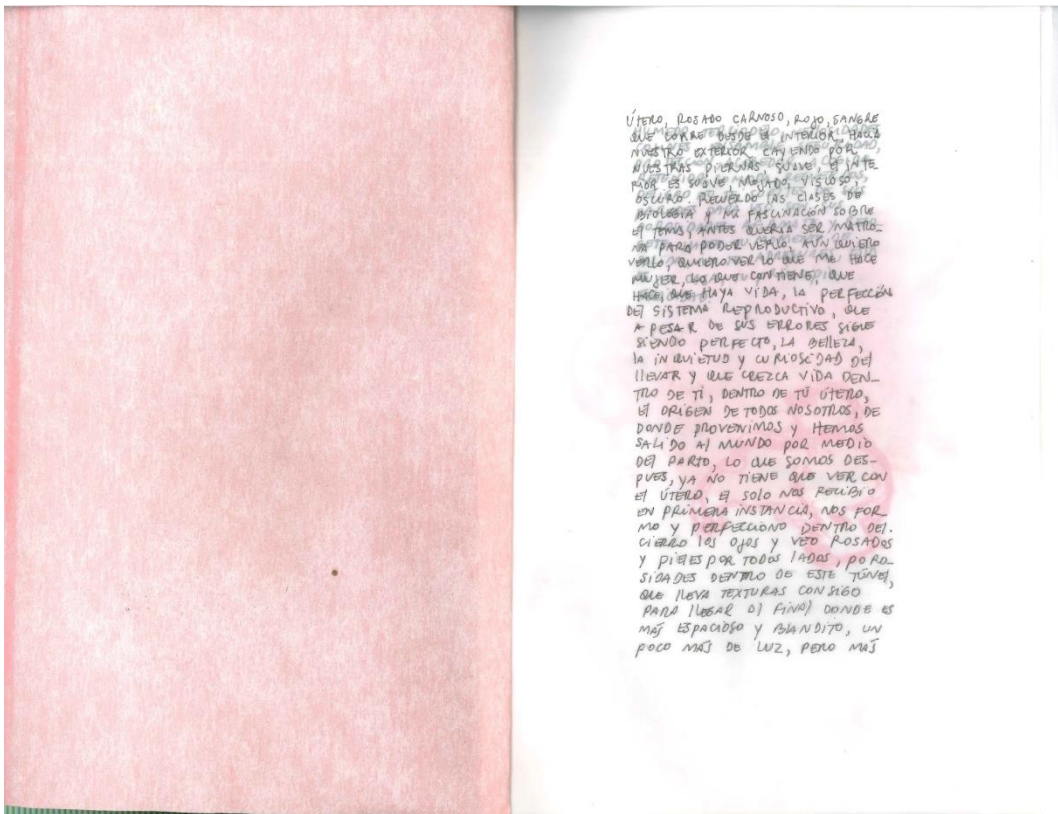 ÚTERO, ROSADO CARNOSO, ROJO, SANGRE
QUE CORRE DESDE EL INTERIOR, HACIA
NUESTRO EXTERIOR CAYENDO POR
NUESTRAS PIERNAS, SUAVE, EL INTE-
RIOR ES SUAVE, MOJADO, VISCOSO,
OSCURO. RECUERDO LAS CLASES DE
BIOLOGÍA Y MI FASCINACIÓN SOBRE
EL TEMA, ANTES QUERÍA SER MATRO-
NA PARA PODER VERLO, AÚN QUIERO
VERLO, QUIERO VER LO QUE ME HACE
MUJER, LO QUE CONTIENE, QUE
HACE QUE HAYA VIDA, LA PERFECCIÓN
DEL SISTEMA REPRODUCTIVO, QUE
A PESAR DE SUS ERRORES SIGUE
SIENDO PERFECTO, LA BELLEZA,
LA INQUIETUD Y CURIOSIDAD DEL
LLEVAR Y QUE CREZCA VIDA DEN-
TRO DE TÍ, DENTRO DE TÚ ÚTERO,
EL ORIGEN DE TODOS NOSOTROS, DE
DONDE PROVENIMOS Y HEMOS
SALIDO AL MUNDO POR MEDIO
DEL PARTO, LO QUE SOMOS DES-
PUES, YA NO TIENE QUE VER CON
EL ÚTERO, EL SOLO NOS RECIBIO
EN PRIMERA INSTANCIA, NOS FOR-
MO Y PERFECCIONO DENTRO DEL.
CIERRO LOS OJOS Y VEO ROSADOS
Y PIELES POR TODOS LADOS, PORO-
SIDADES DENTRO DE ESTE TÚNEL,
QUE LLEVA TEXTURAS CONSIGO
PARA LLEGAR AL FINAL DONDE ES
MÁS ESPACIOSO Y BLANDITO, UN
POCO MÁS DE LUZ, PERO MÁS